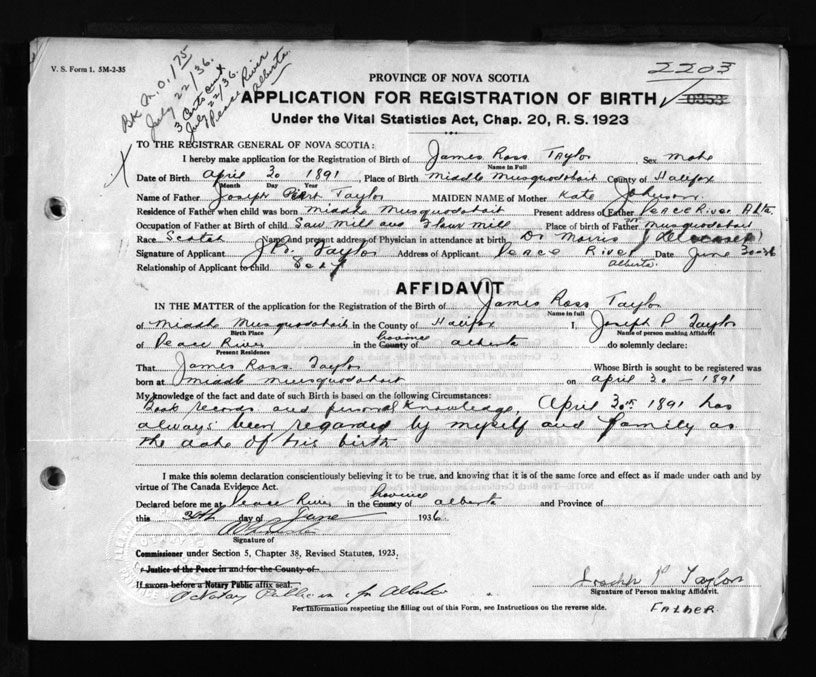 V. S. Form 1. 5M-2-35
Bk M.O. 1.75
July 22/36.
3 Certs out
July 22/36.
Peace River
Alberta.
PROVINCE OF NOVA SCOTIA
2203
APPLICATION FOR REGISTRATION OF BIRTH
0353
Under the Vital Statistics Act, Chap. 20, R. S. 1923
TO THE REGISTRAR GENERAL OF NOVA SCOTIA:
I hereby make application for the Registration of Birth of James Ross Taylor Sex male
Name in Full
Date of Birth April 30 1891, Place of Birth Middle Musquodobait County of Halifax
Month Day Year
Name of Father Joseph Taylor MAIDEN NAME of Mother Kate Johnson
Residence of Father when child was born Middle Musquodobait Present address of Father Peace River Alta.
Occupation of Father at Birth of child Saw Mill and Flour Mill Place of birth of Father Musquodobait
Race Scotch Name and present address of Physician in attendance at birth Dr Morris (Deceased)
Signature of Applicant J R. Taylor Address of Applicant Peace River Alberta. Date June 30-36
Relationship of Applicant to child Self
AFFIDAVIT
IN THE MATTER of the application for the Registration of the Birth of James Ross Taylor
Name in full
of Middle Musquodobait in the County of Halifax I, Joseph P Taylor
Birth Place Name of person making Affidavit
of Peace River in the County of Province Alberta do solemnly declare:
Present Residence
That James Ross Taylor Whose Birth is sought to be registered was
born at Middle Musquodobait on April 30 - 1891
My knowledge of the fact and date of such Birth is based on the following Circumstances:
Book records and personal knowledge, April 30th 1891 has
always been regarded by myself and family as
the date of his birth
I make this solemn declaration conscientiously believing it to be true, and knowing that it is of the same force and effect as if made under oath and by
virtue of The Canada Evidence Act.
Declared before me at Peace River in the County of Province Alberta and Province of
this 30th day of June 1936.
Signature of
Commissioner under Section 5, Chapter 38, Revised Statutes, 1923.
Justice of the Peace in and for the County of
If sworn before a Notary Public affix seal.
A Notary Public in & for Alberta
Joseph P Taylor
Signature of Person making Affidavit.
FATHER.
For information respecting the filling out of this Form, see Instructions on the reverse side.